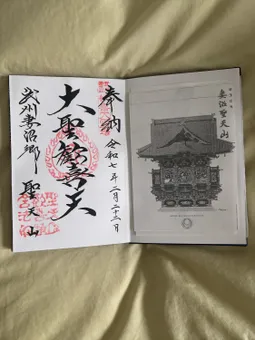 妻沼聖天山
奉納
令和七年二月二十三日
大聖歓喜天
武州妻沼郷
聖天山